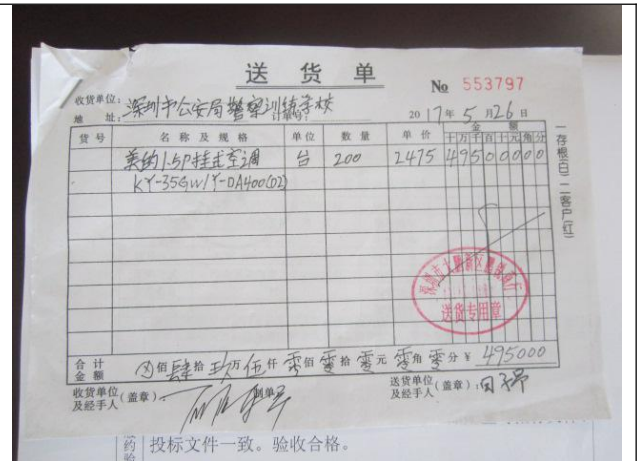 送货单
№ 553797
收货单位:深圳市公安局警察训练学校
地 址: 2017年5月26日
货号 名称及规格 单位 数量 单价 金额
十万千百十元角分
美的1.5P挂式空调 台 200 2475 49500000
KY-35GW/Y-DA400(D2)
一存根(白)二客户(红)
送货专用章
合计金额 ⊗佰肆拾玖万伍仟零佰零拾零元零角零分 ¥ 495000
收货单位及经手人(盖章): 制单
送货单位及经手人(盖章):
投标文件一致。验收合格。